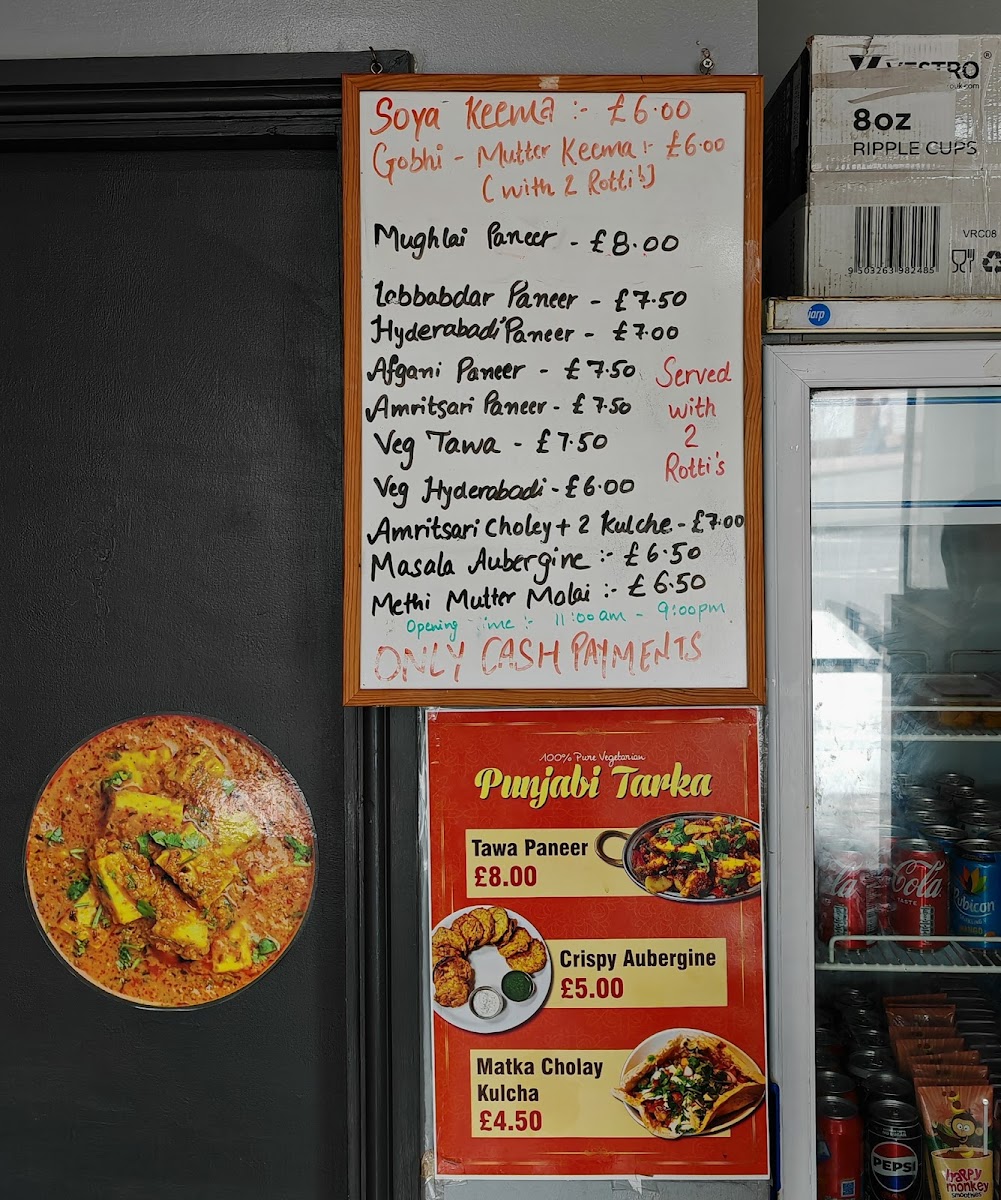 Soya Keema :- £6.00
Gobhi - Mutter Keema :- £6.00
(with 2 Rotti's)
Mughlai Paneer - £8.00
Labbabdar Paneer - £7.50
Hyderabadi Paneer - £7.00
Afgani Paneer - £7.50
Amritsari Paneer - £7.50
Veg Tawa - £7.50
Served
with
2
Rotti's
Veg Hyderabadi - £6.00
Amritsari Choley + 2 Kulche - £7.00
Masala Aubergine :- £6.50
Methi Mutter Molai :- £6.50
Opening ime :- 11:00am - 9:00pm
ONLY CASH PAYMENTS
100% Pure Vegetarian
Punjabi Tarka
Tawa Paneer
£8.00
Crispy Aubergine
£5.00
Matka Cholay
Kulcha
£4.50
VESTRO
8oz
RIPPLE CUPS
VRC08
9 503263 982485
iarp
Cola
TASTE
Rubicon
MANGO
PEPSI
haPPy
monkey
smoothies